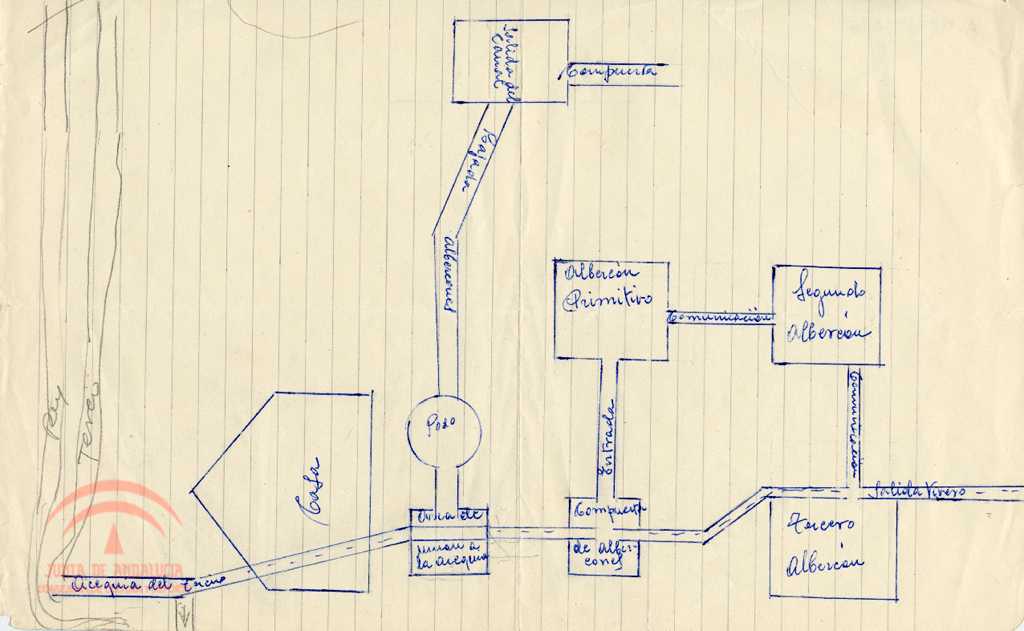 Salida del
Canal
Compuerta
Bajada
albercones
Albercón
Primitivo
Comunicación
Segundo
Albercón
Comunicación
Pozo
Entrada
Casa
Rey
Tercio
Salida Vivero
Tercero
Albercón
Compuerta
de alber-
cones
de
unión a
la acequia
Acequia del Tercio
JUNTA DE ANDALUCIA